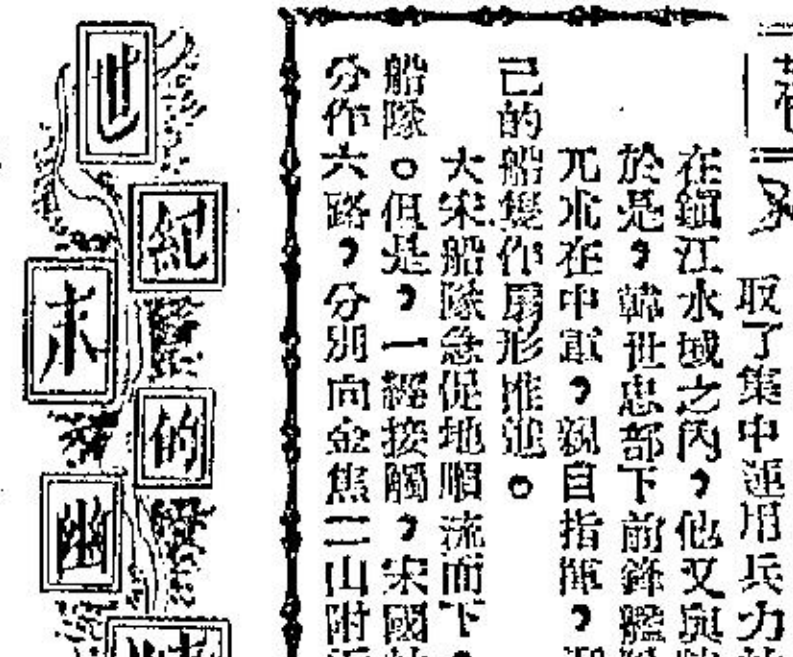 取了集中運用兵力
在鎮江水域之內，他又與
於是，韓世忠部下前鋒艦
兀朮在中軍，親自指揮，
己的船隻作扇形推進。
大宋船隊急促地順流而下，
船隊。但是，一經接觸，宋國
分作六路，分別向金焦二山附
世紀末的幽